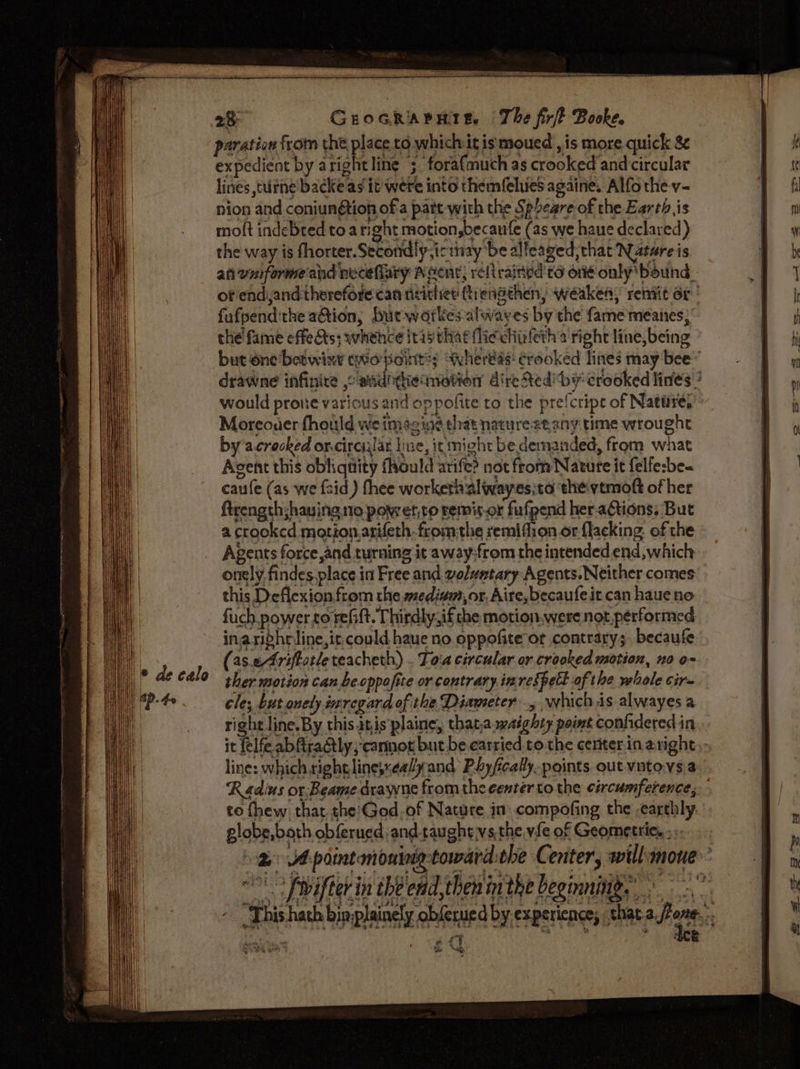 28 GEOGRAPHIE. The first Booke.
paration from the place to which it is moued, is more quick &
expedient by a right line ; forasmuch as crooked and circular
lines, turne backe as it were into themselues againe. Also the v-
nion and coniunction of a part with the Spheare of the Earth, is
most indebted to a right motion, because (as we haue declared)
the way is shorter. Secondly, it may be alleaged, that Nature is
an vniforme and necessary Agent, restrained to one only bound
or end, and therefore can neither strengthen, weaken, remit or
suspend the action, but workes alwayes by the same meanes,
the same effects; whence it is that she chuseth a right line, being
but one betwixt two points; whereas crooked lines may bee
drawne infinite, and the motion directed by crooked lines
would proue various and opposite to the prescript of Nature.
Moreouer should we imagine that nature at any time wrought
by a crooked or circular line, it might be demanded, from what
Agent this obliquity should arise? not from Nature it selfe: be-
cause (as we said) shee worketh alwayes to the vtmost of her
strength, hauing no power to remit or suspend her actions. But
a crooked motion ariseth from the remission or slacking of the
Agents force, and turning it away from the intended end, which
onely findes place in Free and voluntary Agents. Neither comes
this Deflexion from the medium, or Aire, because it can haue no
such power to resist. Thirdly, if the motion were not performed
in a right line, it could haue no opposite or contrary; because
* de cælo (as Aristotle teacheth) To a circular or crooked motion, no o-
ap. 4. ther motion can be opposite or contrary in respect of the whole cir-
cle, but onely in regard of the Diameter, which is alwayes a
right line. By this it is plaine, that a waighty point considered in
it selfe abstractly, cannot but be carried to the center in a right
line: which right line, really and Physically points out vnto vs a
Radius or Beame drawne from the center to the circumference,
to shew that the God of Nature in composing the earthly
globe, both obserued and taught vs the vse of Geometrie.
2 A point mouing toward the Center, will moue
swifter in the end, then in the beginning.
This hath bin plainely obserued by experience, that a stone